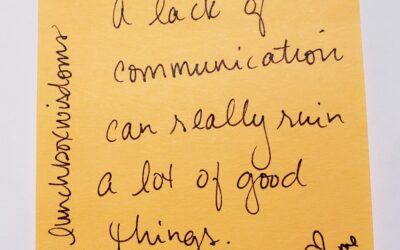 A lack of
communication
can really ruin
a lot of good
things.
lunchboxwisdoms
me